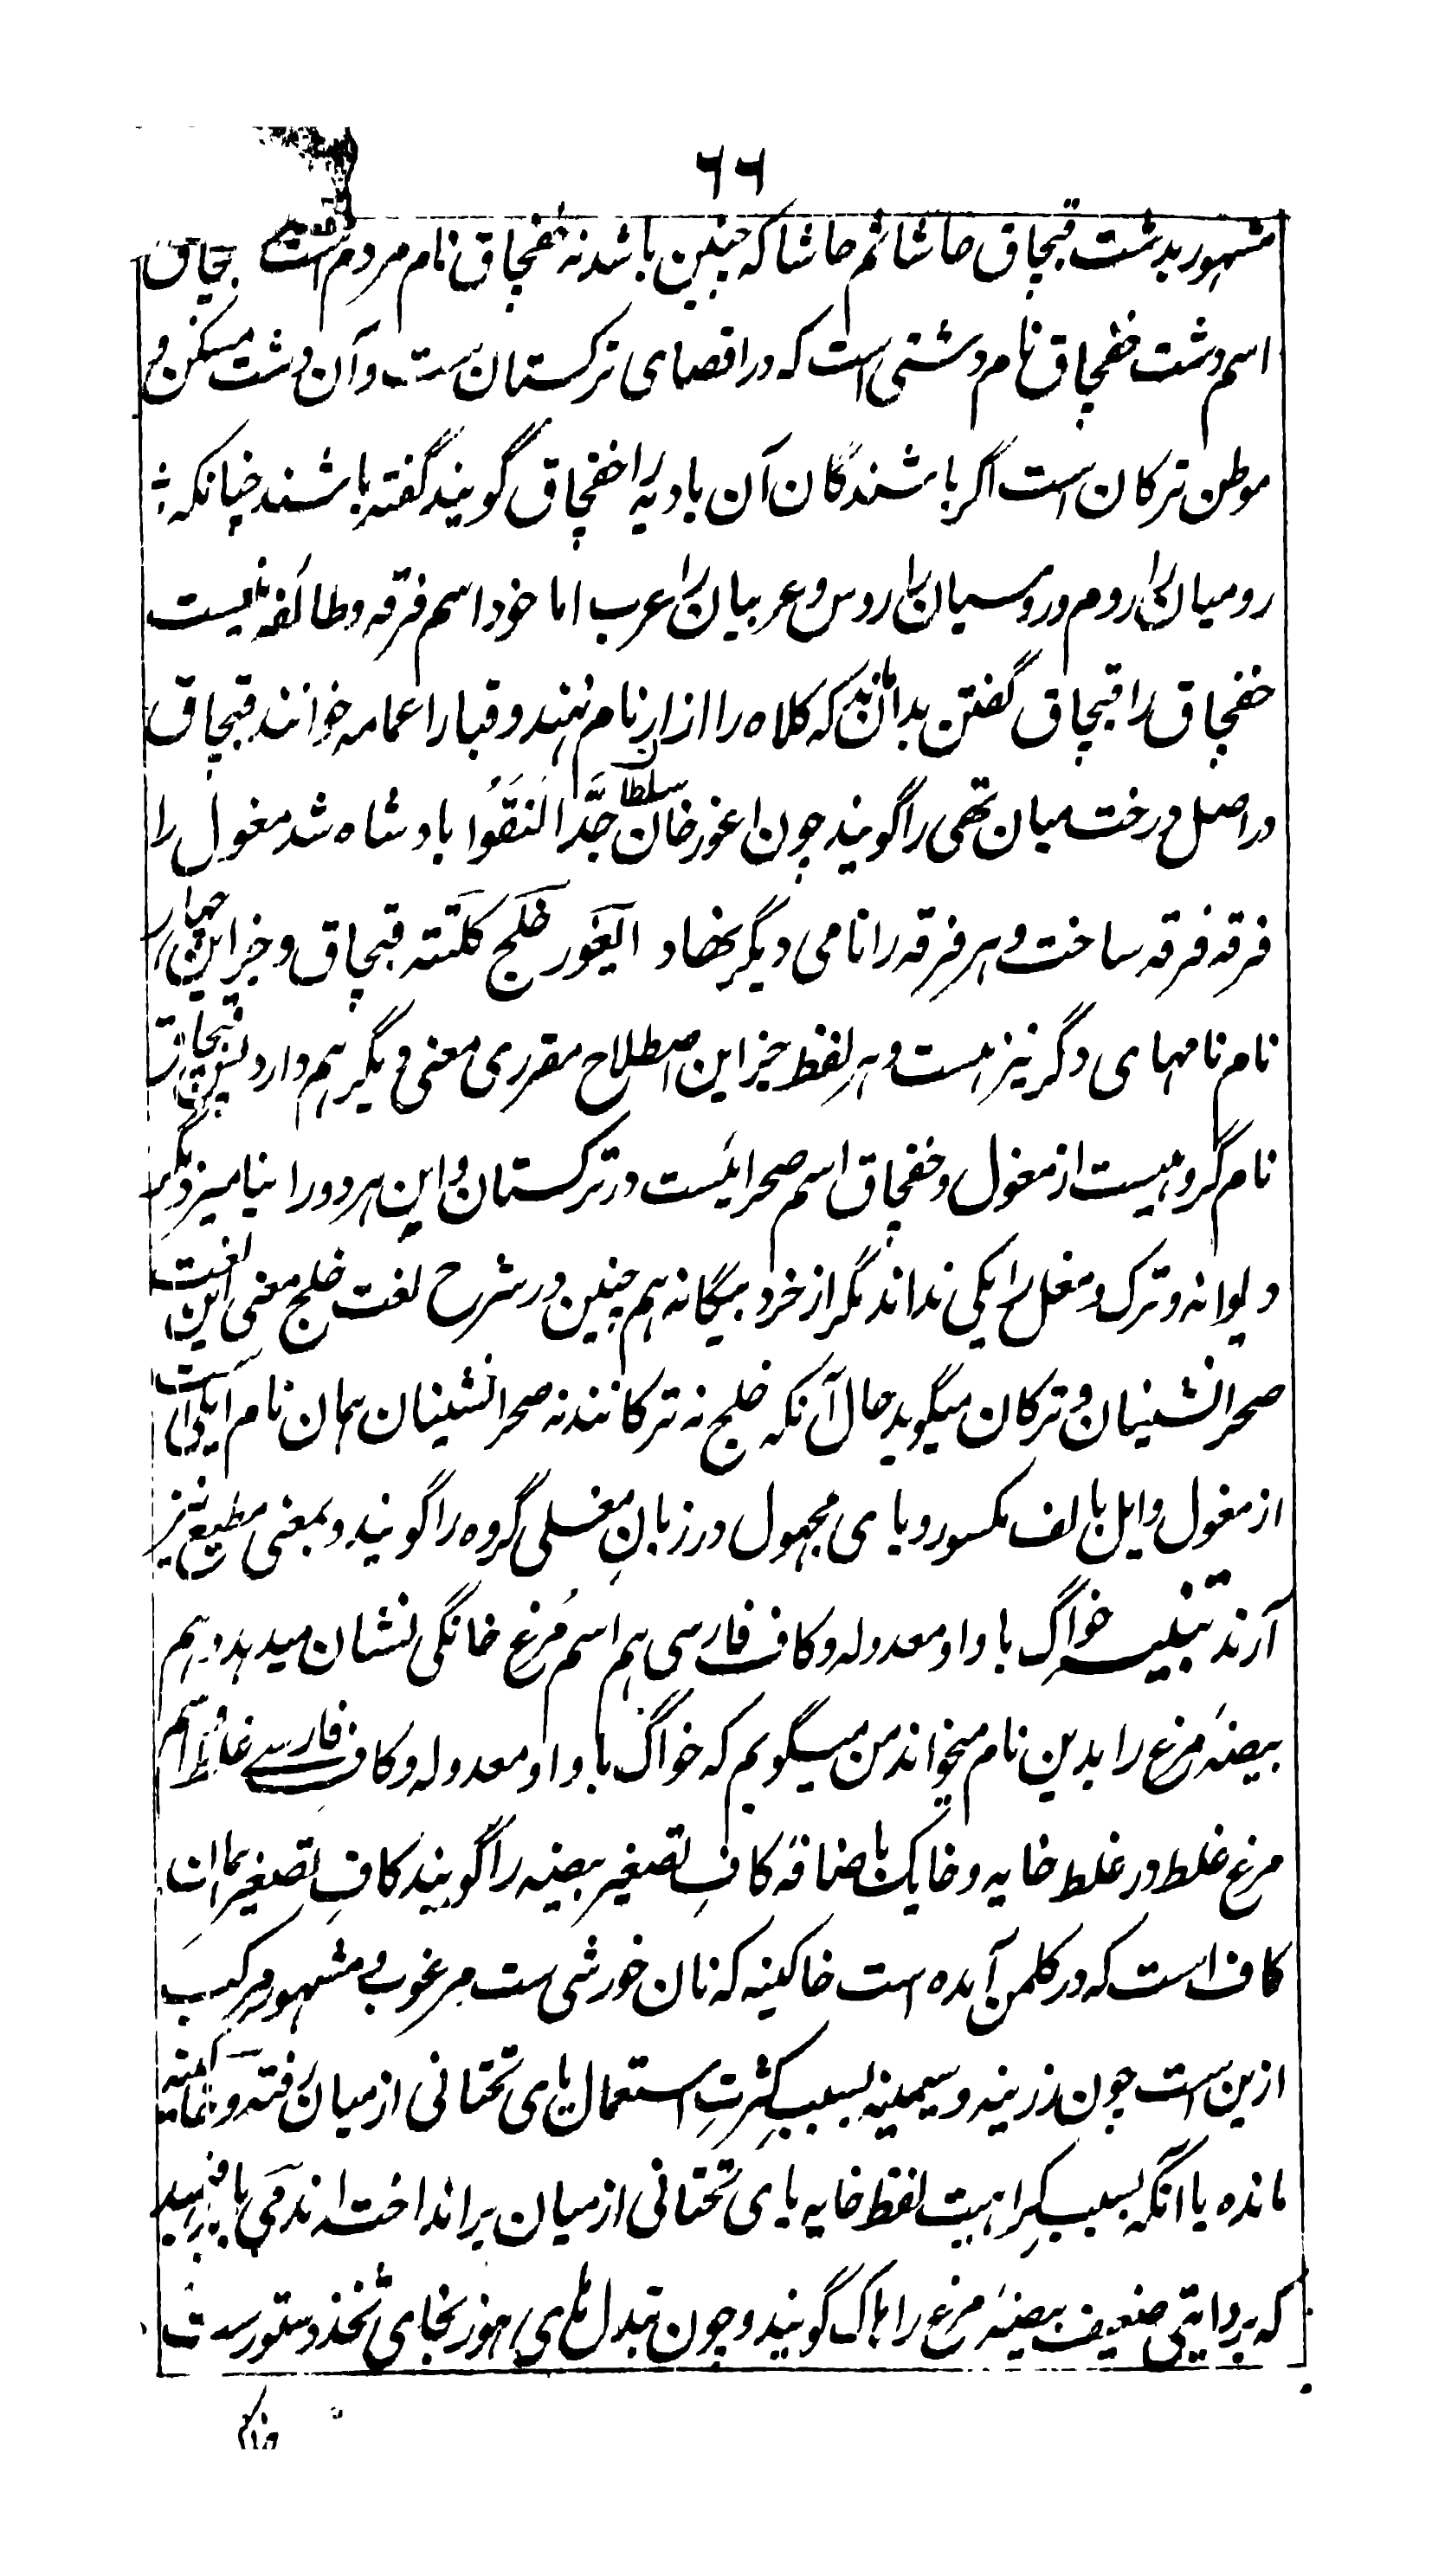 ۶۶
مشهور بدشت قبچاق حاشا ثم حاشا که چنین باشد نه خفچاق نام مردم است نه قبچاق
اسم دشت خفچاق نام دشتی است که در اقصای ترکستان ست و آن دشت مسکن و
موطن ترکان است اگر باشندگان آن بادیه را خفچاق گویند گفته باشند چنانکه
رومیان را روم و روسیان را روس و عربیان را عرب اما خود اسم فرقه و طائفه نیست
خفچاق را قبچاق گفتن بدان ماند که کلاه را ازار نام نهند و قبا را عمامه خوانند قبچاق
در اصل درخت میان تهی را گویند چون اغورخان سلطان جدّ النقوا بادشاه شد مغول را
فرقه فرقه ساخت و هر فرقه را نامی دیگر نهاد ایغور خلج کلتته قبچاق و جز این چهار
نام نامهای دگر نیز هست و هر لفظ جز این اصطلاح مقرری معنی دیگر هم دارد پس قبچاق
نام گروهیست از مغول و خفچاق اسم صحرائیست در ترکستان و این هر دو را نیامیزد مگر
دیوانه و ترک و مغل را یکی نداند مگر از خرد بیگانه هم چنین در شرح لغت خلج معنی این لغت
صحرانشینان و ترکان میگوید حال آنکه خلج نه ترکانند نه صحرانشینان همان نام ایلی است
از مغول و ایل بالف مکسور و یای مجهول در زبان مغلی گروه را گویند و بمعنی مطیع نیز
آرند تنبیه خواگ با واو معدوله و کاف فارسی هم اسم مُرغ خانگی نشان میدهد و هم
بیضهٔ مرغ را بدین نام میخواند من میگویم که خواگ با واو معدوله و کاف فارسی غلط و اسم
مرغ غلط در غلط خایه و خایک باضافهٔ کافِ تصغیر بیضه را گویند کافِ تصغیر همان
کاف است که در کلمن آمده است خاکینه که نان خورشی ست مرغوب و مشهور مرکب
ازین ست چون زرینه و سیمینه بسبب کثرتِ استعمال یای تحتانی از میان رفته و خاگینه
مانده یا آنکه بسبب کراهیت لفظ خایه یای تحتانی از میان برانداختند
که بروایتی ضعیف بیضهٔ مرغ را هاک گویند و چون تبدل های هوز بخای ثخذ دستورست